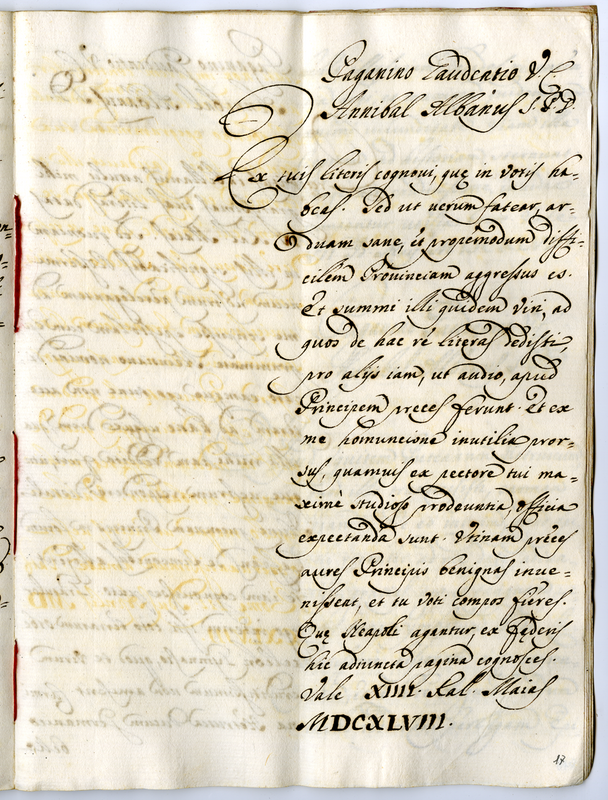 Paganino Gaudentio V. C.
Annibal Albanus S. P. D.
Ex tuis literis cognovi, quę in votis ha-
beas. Sed ut uerum fatear, ar-
duam sane, et propemodum diffi-
cilem Prouinciam aggressus es.
Et summi illi quidem viri, ad
quos de hac re literas dedisti,
pro alijs iam, ut audio, apud
Principem preces ferunt. Et ex
me homuncione inutilia pror-
sus, quamuis ex pectore tui ma-
ximè studioso prodeuntia, officia
expectanda sunt. Vtinam preces
aures Principis benignas inue-
nissent, et tu voti compos fieres.
Quę Neapoli agantur, ex fęderis
hic adiuncta pagina cognosces.
Vale XIIII. Kal. Maias
MDCXLVIII.
17